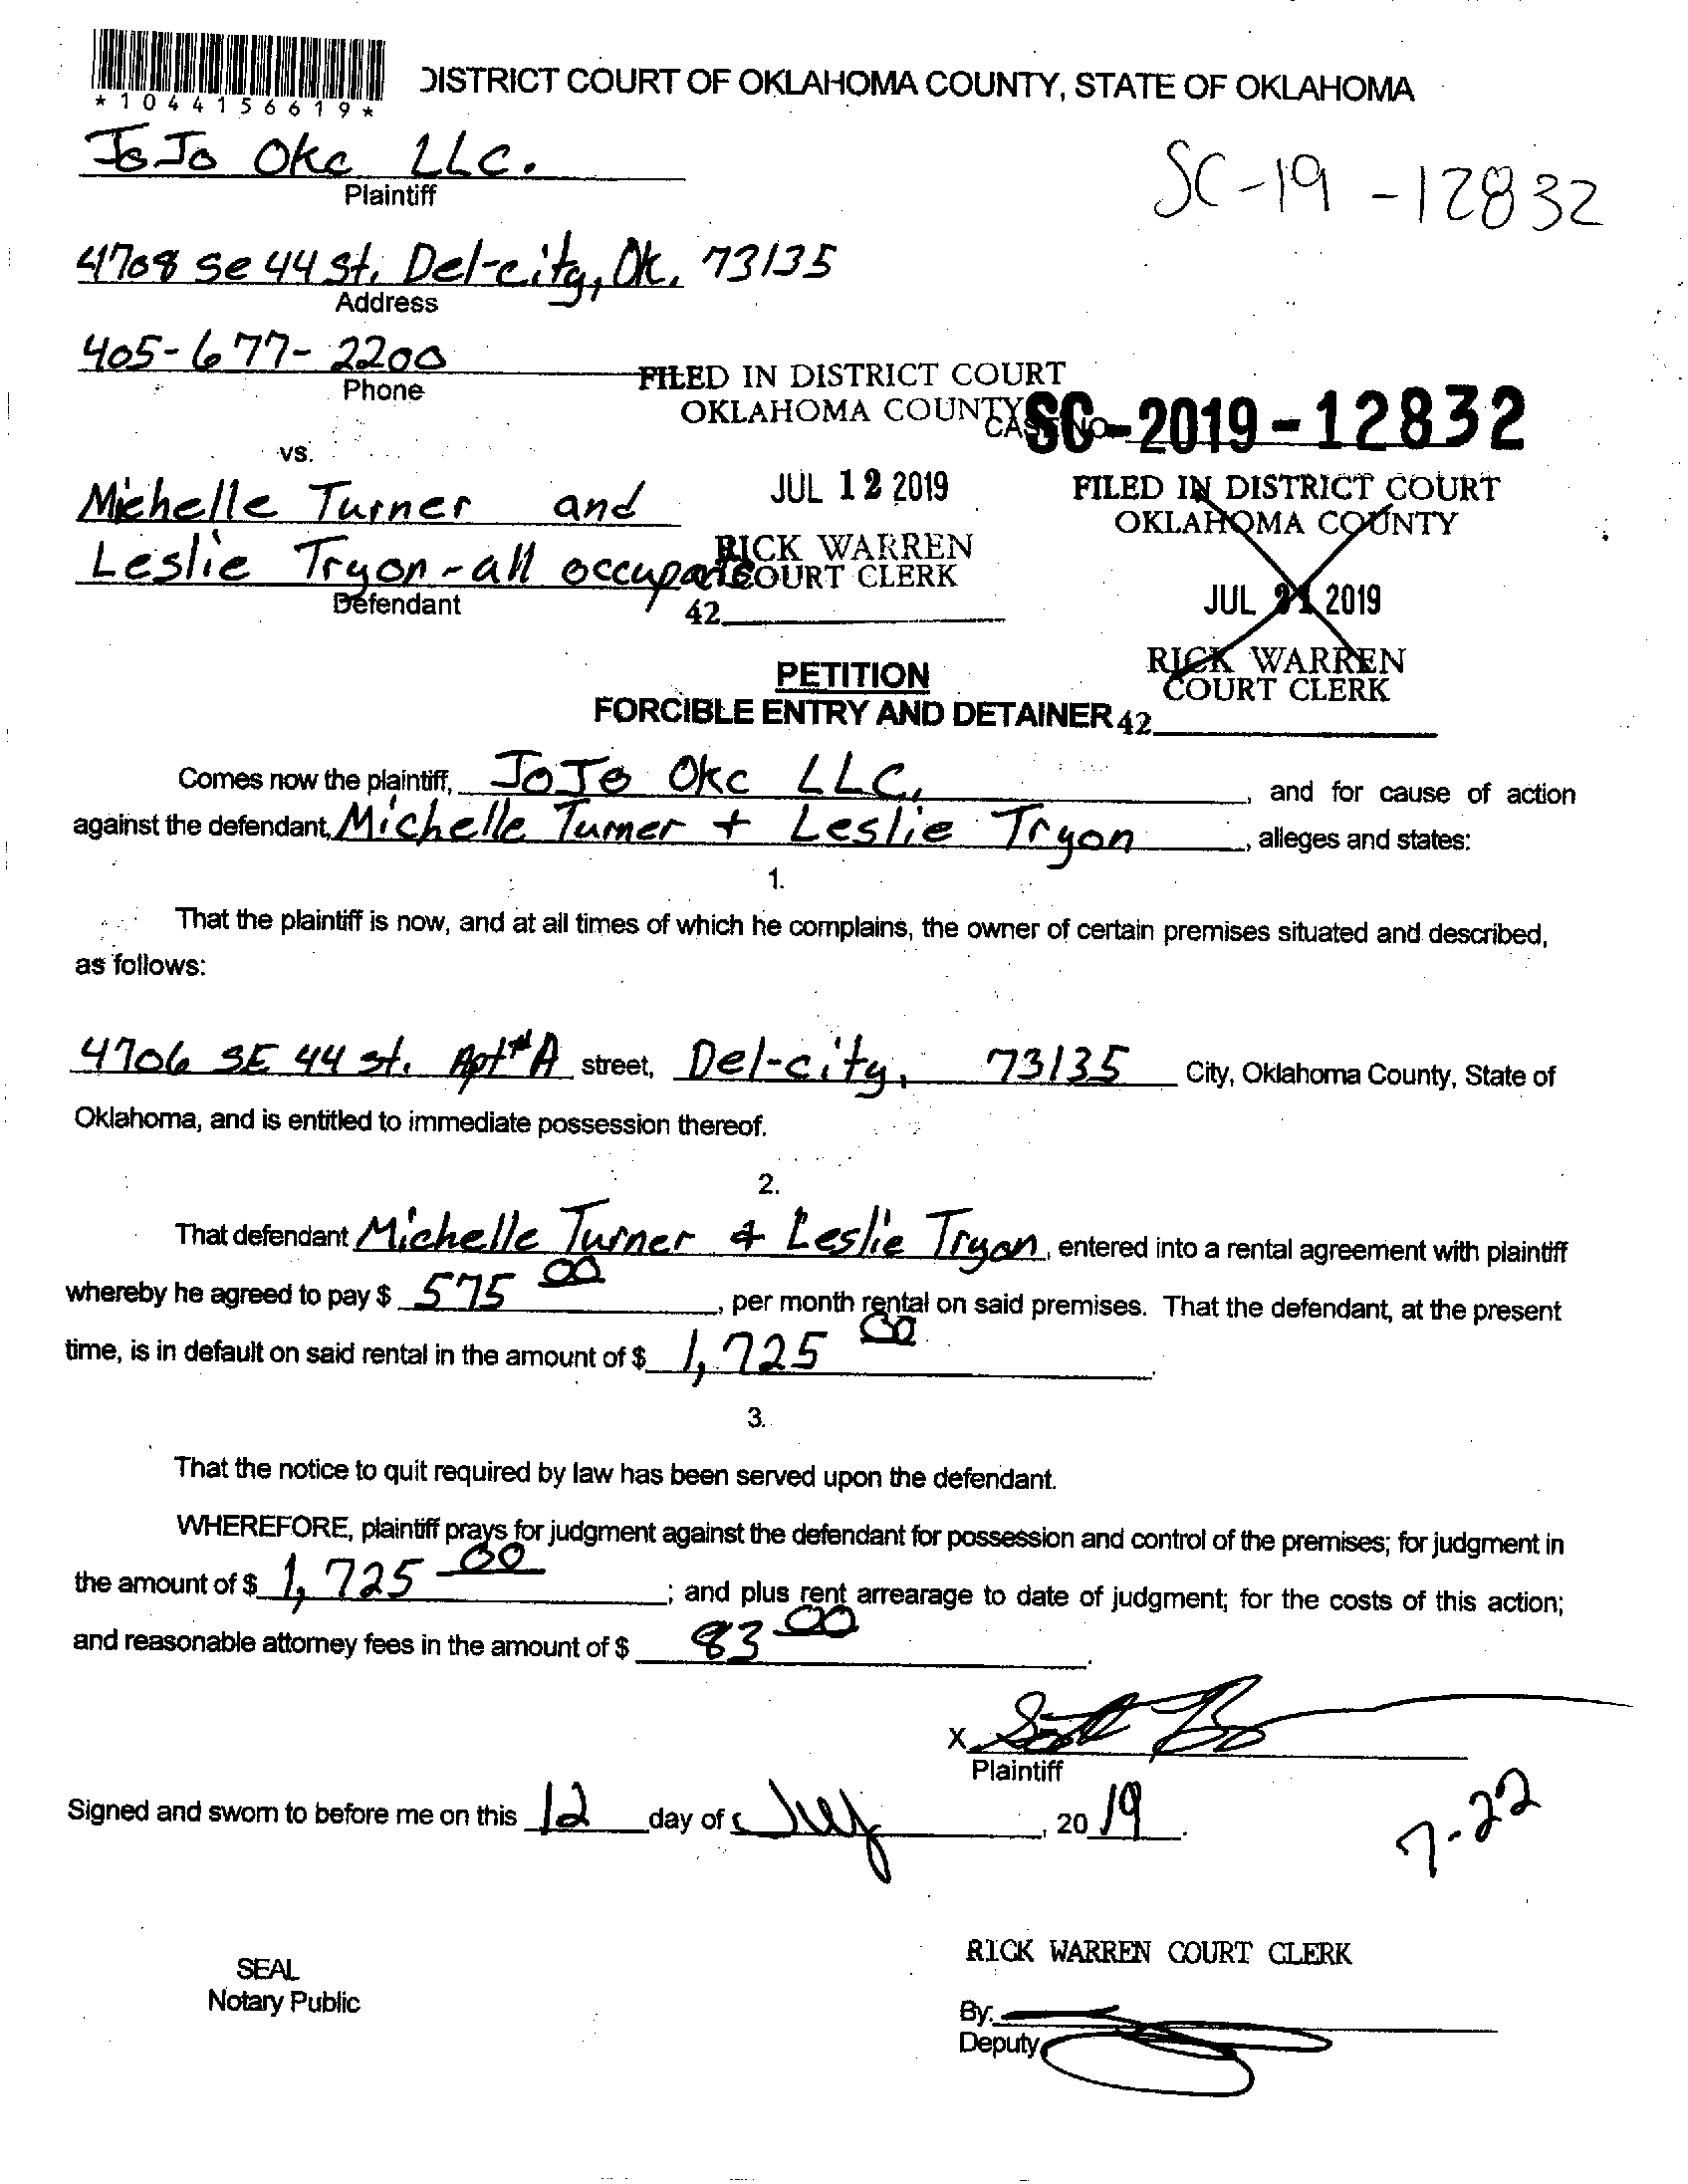 DISTRICT COURT OF OKLAHOMA COUNTY, STATE OF OKLAHOMA
*1044156619*
JoJo Okc LLC.
Plaintiff
SC-19-12832
4708 Se 44 St. Del-city, Ok. 73135
Address
405-677-2200
Phone
FILED IN DISTRICT COURT
OKLAHOMA COUNTY
CASE NO. SC-2019-12832
vs.
JUL 12 2019
FILED IN DISTRICT COURT
OKLAHOMA COUNTY
Michelle Turner and
Leslie Tryon - all occupants
Defendant
RICK WARREN
COURT CLERK
42
JUL 2019
RICK WARREN
COURT CLERK
42
PETITION
FORCIBLE ENTRY AND DETAINER
Comes now the plaintiff, JoJo Okc LLC, and for cause of action
against the defendant, Michelle Turner + Leslie Tryon, alleges and states:
1.
That the plaintiff is now, and at all times of which he complains, the owner of certain premises situated and described,
as follows:
4706 SE 44 st. Apt#A street, Del-city, 73135 City, Oklahoma County, State of
Oklahoma, and is entitled to immediate possession thereof.
2.
That defendant Michelle Turner & Leslie Tryon, entered into a rental agreement with plaintiff
whereby he agreed to pay $ 575 00, per month rental on said premises. That the defendant, at the present
time, is in default on said rental in the amount of $ 1,725 00.
3.
That the notice to quit required by law has been served upon the defendant.
WHEREFORE, plaintiff prays for judgment against the defendant for possession and control of the premises; for judgment in
the amount of $ 1,725 00; and plus rent arrearage to date of judgment; for the costs of this action;
and reasonable attorney fees in the amount of $ 83 00.
X
Plaintiff
Signed and sworn to before me on this 12 day of July, 2019.
7-22
SEAL
Notary Public
RICK WARREN COURT CLERK
By:
Deputy